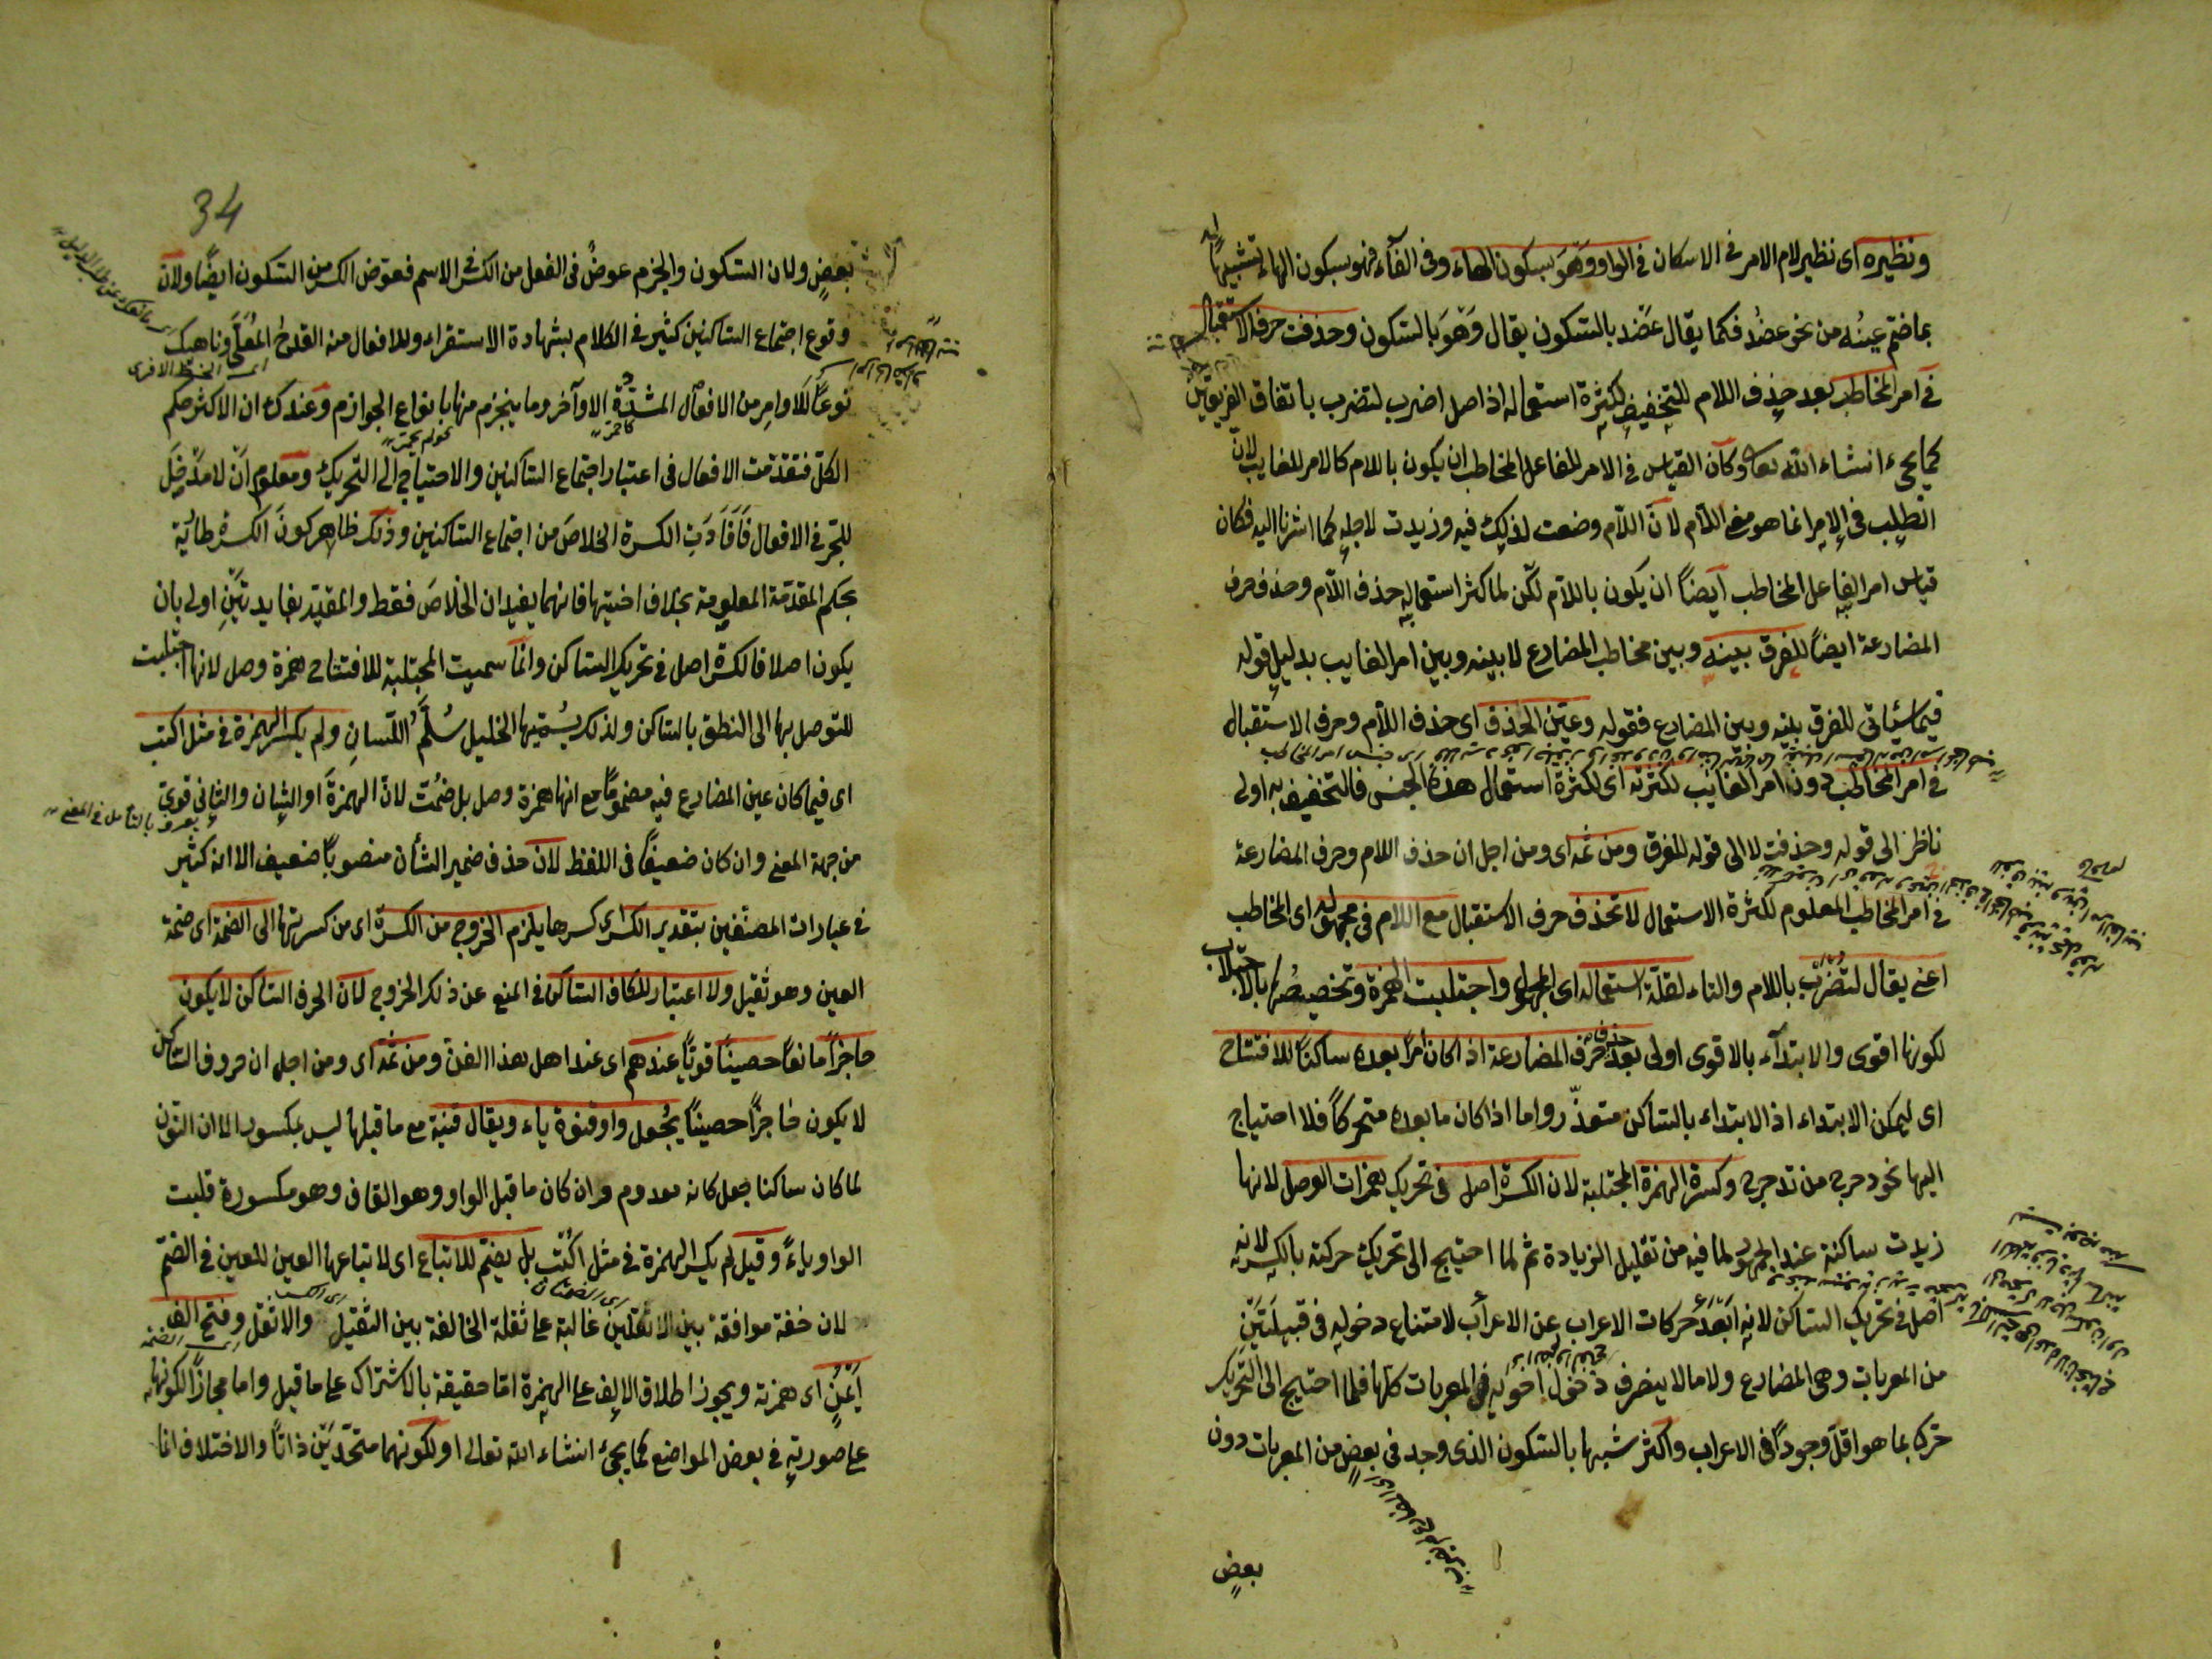 ونظيره اى نظير لام الامر فى الاسكان فى الواو وهو بسكون الهاء وفى الفآء فهو بسكون الهاء تشبيها له
بما ضم عينه من نحو عضد فكما يقال عضد بالسكون يقال وهو بالسكون وحذفت حرف الاستقبال
فى امر المخاطب بعد حذف اللام للتخفيف لكثرة استعماله اذ اصل اضرب لتضرب باتفاق الفريقين
كما يجىء انشاء الله تعالى وكان القياس فى الامر للفاعل المخاطب ان يكون باللام كالامر للغايب لان
الطلب فى الامر انما هو من اللام لان اللام وضعت لذلك فيه وزيدت لاجله كما اشرنا اليه فكان
قياس امر الفاعل المخاطب ايضا ان يكون باللام لكن لما كثر استعماله حذف اللام وحذف حرف
المضارعة ايضا للفرق بينه وبين مخاطب المضارع لا بينه وبين امر الغايب بدليل قوله
فيما سيأتى للفرق بينه وبين المضارع فقوله وعين الحذف اى حذف اللام وحرف الاستقبال
فى امر المخاطب دون امر الغايب لكثرته اى لكثرة استعمال هذا الجنس فالتخفيف به اولى
ناظر الى قوله وحذفت لا الى قوله للفرق ومن ثمه اى ومن اجل ان حذف اللام وحرف المضارعة
فى امر المخاطب المعلوم لكثرة الاستعمال لا تحذف حرف الاستقبال مع اللام فى مجهوله اى المخاطب
اعنى يقال لتضرب باللام والتاء لقلة استعماله اى المجهول واجتلبت الهمزة وتخصيصها بالاجتلاب
لكونها اقوى والابتدآء بالاقوى اولى بعد حذف حرف المضارعة اذا كان ما بعده ساكنا للافتتاح
اى ليمكن الابتداء اذ الابتداء بالساكن متعذر واما اذا كان ما بعده متحركا فلا احتياج
اليها نحو دحرج من تدحرج وكسرة الهمزة المجتلبة لان الكسرة اصل فى تحريك همزات الوصل لانها
زيدت ساكنة عند الجمهور لما فيه من تقليل الزيادة ثم لما احتيج الى تحريك حركته بالكسر لانه
اصل فى تحريك الساكن لانه ابعد حركات الاعراب عن الاعراب لامتناع دخوله فى قبيلتين
من المعربات وهى المضارع وما لا ينصرف دخول اخويه فى المعربات كلها فلما احتيج الى التحريك
حرك بما هو اقل وجودا فى الاعراب واكثر شبها بالسكون الذى وجد فى بعض من المعربات دون
بعض
34
بعض ولان السكون والجزم عوض فى الفعل من الكسر فى الاسم فعوض الكسر من السكون ايضا ولان
وقوع اجتماع الساكنين كثير فى الكلام بشهادة الاستقراء وللافعال منه القدح المعلى وناهيك
نوعا الاوامر من الافعال المشددة الاوآخر وما ينجزم منها بانواع الجوازم وعندك ان الاكثر حكم
الكل فتقدمت الافعال فى اعتبار اجتماع الساكنين والاحتياج الى التحريك ومعلوم ان لا مدخل
للجر فى الافعال فافادت الكسرة الخلاص من اجتماع الساكنين وذلك ظاهر كون الكسرة طارئة
بحكم المقدمة المعلومة بخلاف اختيها فانهما يفيدان الخلاص فقط والمقيد بفايدتين اولى بان
يكون اصلا فالكسرة اصل فى تحريك الساكن وانما سميت المجتلبة للافتتاح همزة وصل لانها اجتلبت
للتوصل بها الى النطق بالساكن ولذلك يسميها الخليل سلم اللسان ولم يكسر الهمزة فى مثل اكتب
اى فيما كان عين المضارع فيه مضموما مع انها همزة وصل بل ضمت لان الهمزة او الشان والثانى قوى
من جهة المعنى وان كان ضعيفا فى اللفظ لان حذف ضمير الشأن منصوبا ضعيف الا انه كثير
فى عبارات المصنفين بتقدير الكسر اى كسرها يلزم الخروج من الكسرة اى من كسرتها الى الضمة اى ضمة
العين وهو ثقيل ولا اعتبار للكاف الساكن فى المنع عن ذلك الخروج لان الحرف الساكن لا يكون
حاجزا مانعا حصينا قويا عندهم اى عند اهل هذا الفن ومن ثمه اى ومن اجل ان حروف الساكن
لا يكون حاجزا حصينا يجعل واو قنوة ياء ويقال قنية مع ما قبلها ليس بمكسور لما ان النون
لما كان ساكنا جعل كانه معدوم وان كان ما قبل الواو وهو القاف وهو مكسورة قلبت
الواو ياء وقيل لم يكسر الهمزة فى مثل اكتب بل يضم للاتباع اى لاتباعها العين للعين فى الضم
لان خفة موافقة بين الاثقلين غالبة على ثقلة المخالفة بين الثقيل والاثقل وفتح الف
ايمن اى همزته ويجوز اطلاق الالف على الهمزة اما حقيقة بالاشتراك على ما قيل واما مجازا لكونها
على صورته فى بعض المواضع كما يجىء انشاء الله تعالى او لكونهما متحدين ذاتا والاختلاف انما